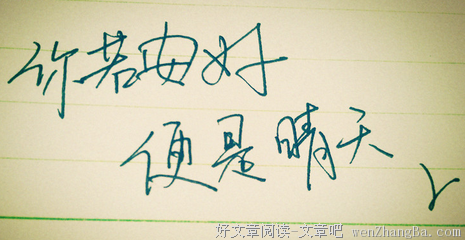 你若安好
便是晴天
好文章阅读-文章吧 wenZhangBa.com